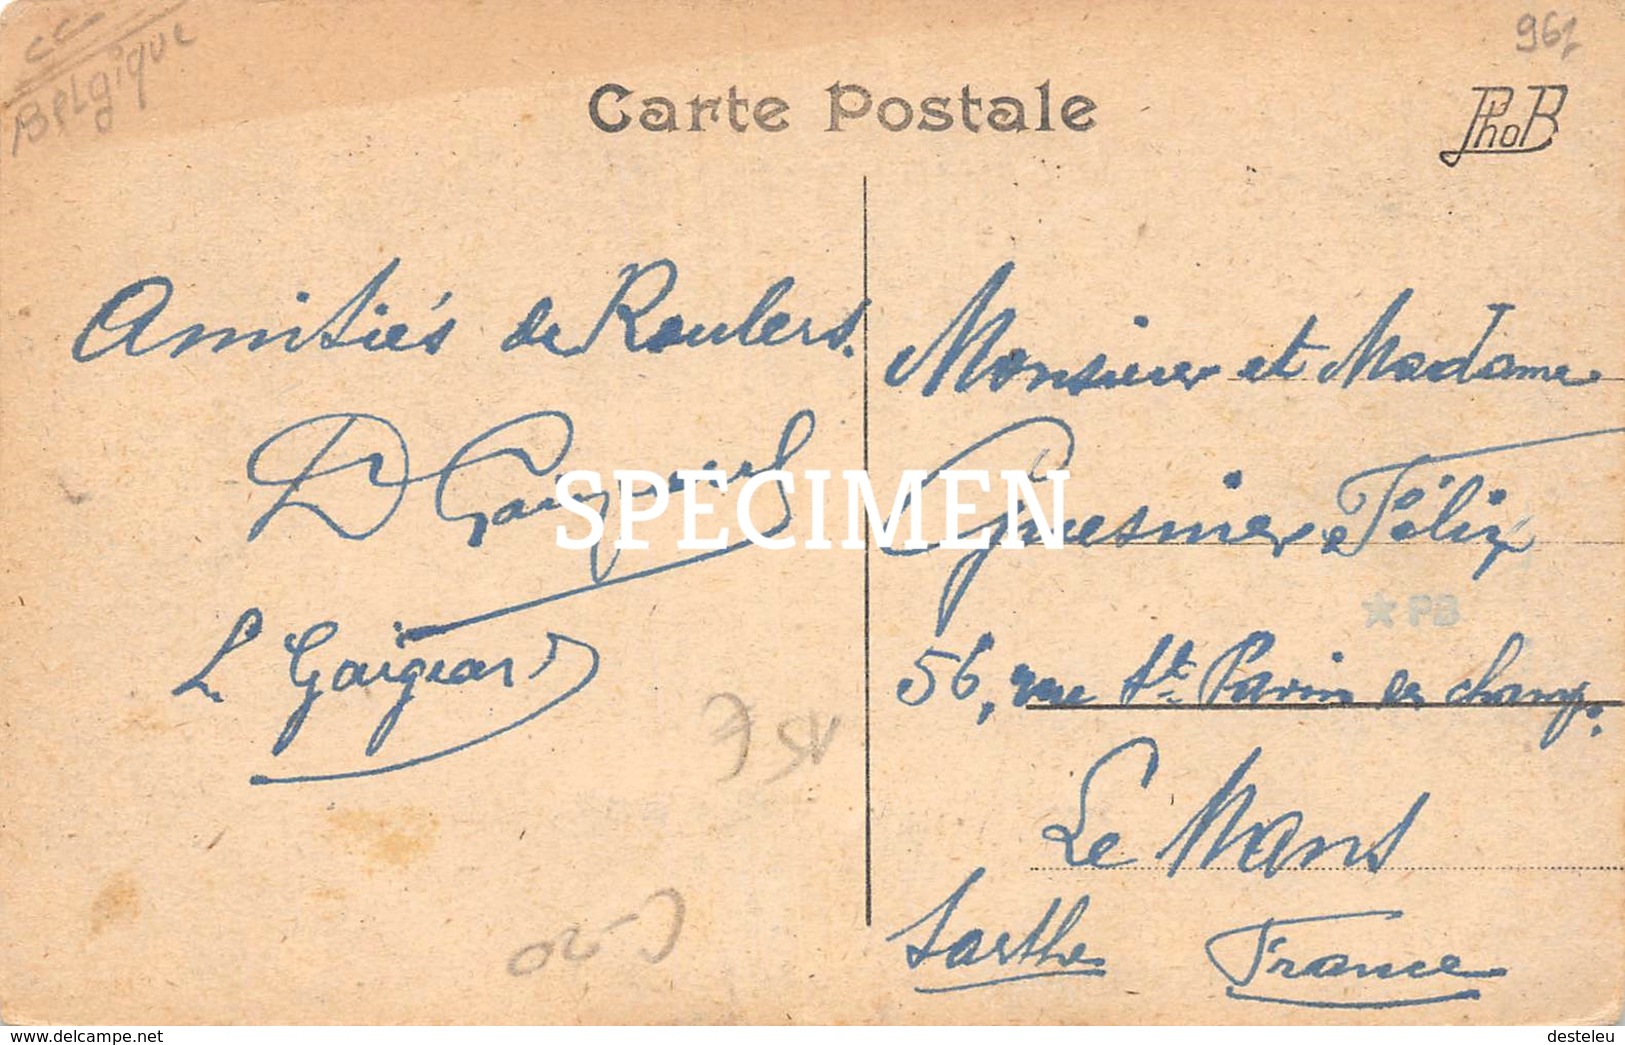 CC
Belgique
961
Carte Postale
PhoB
Amitiés de Roulers.
L Gaigeard
Monsieur et Madame
Guesnier Félix
★ PB
56, rue St Pavin des champs.
Le Mans
Sarthe France
SPECIMEN
15 F
C-20
https://www.delcampe.net
desteleu